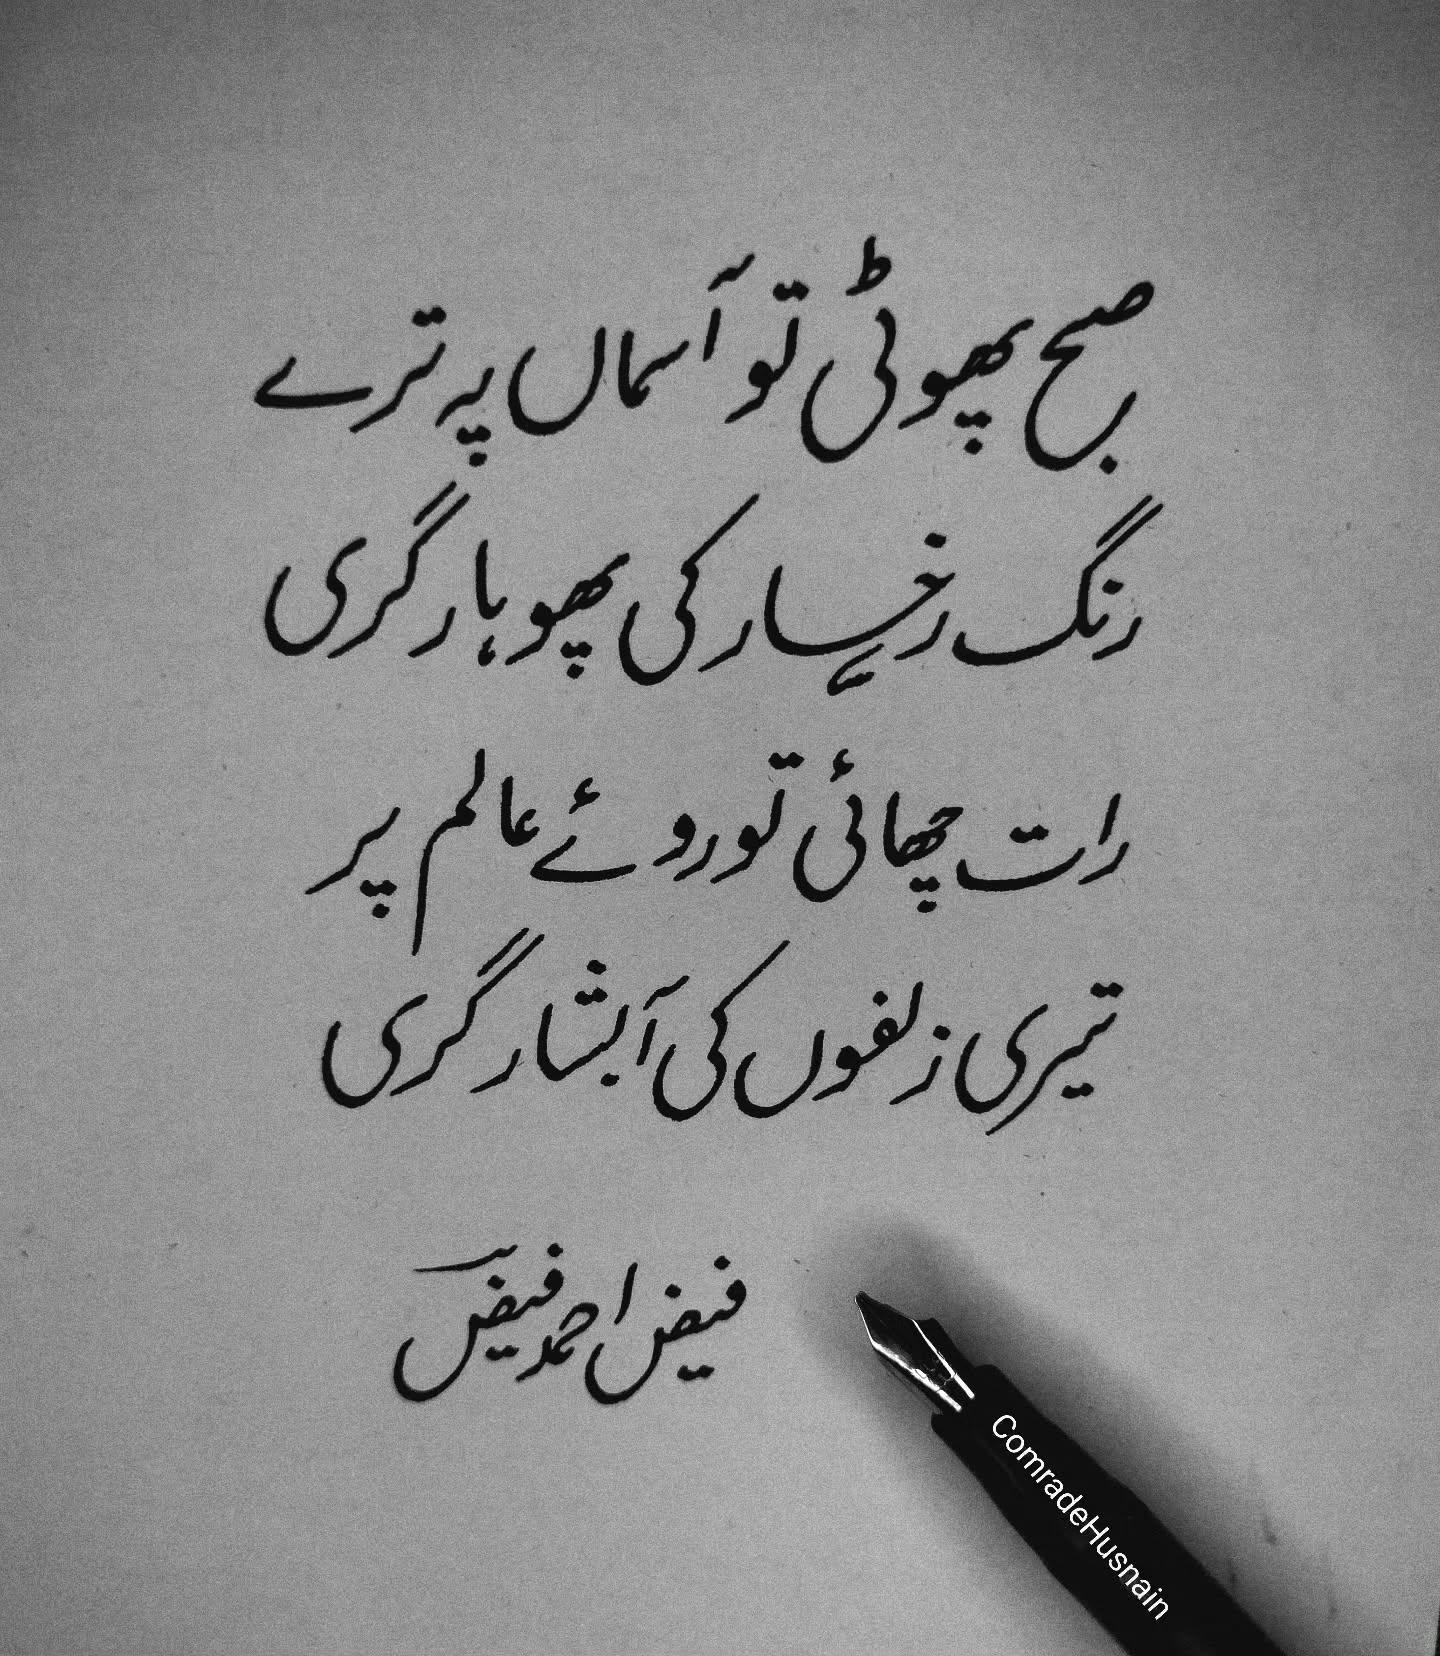 صبح پھوٹی تو آسماں پہ ترے
رنگ رخسار کی پھوہار گری
رات چھائی تو روئے عالم پر
تیری زلفوں کی آبشار گری
فیض احمد فیض
ComradeHusnain